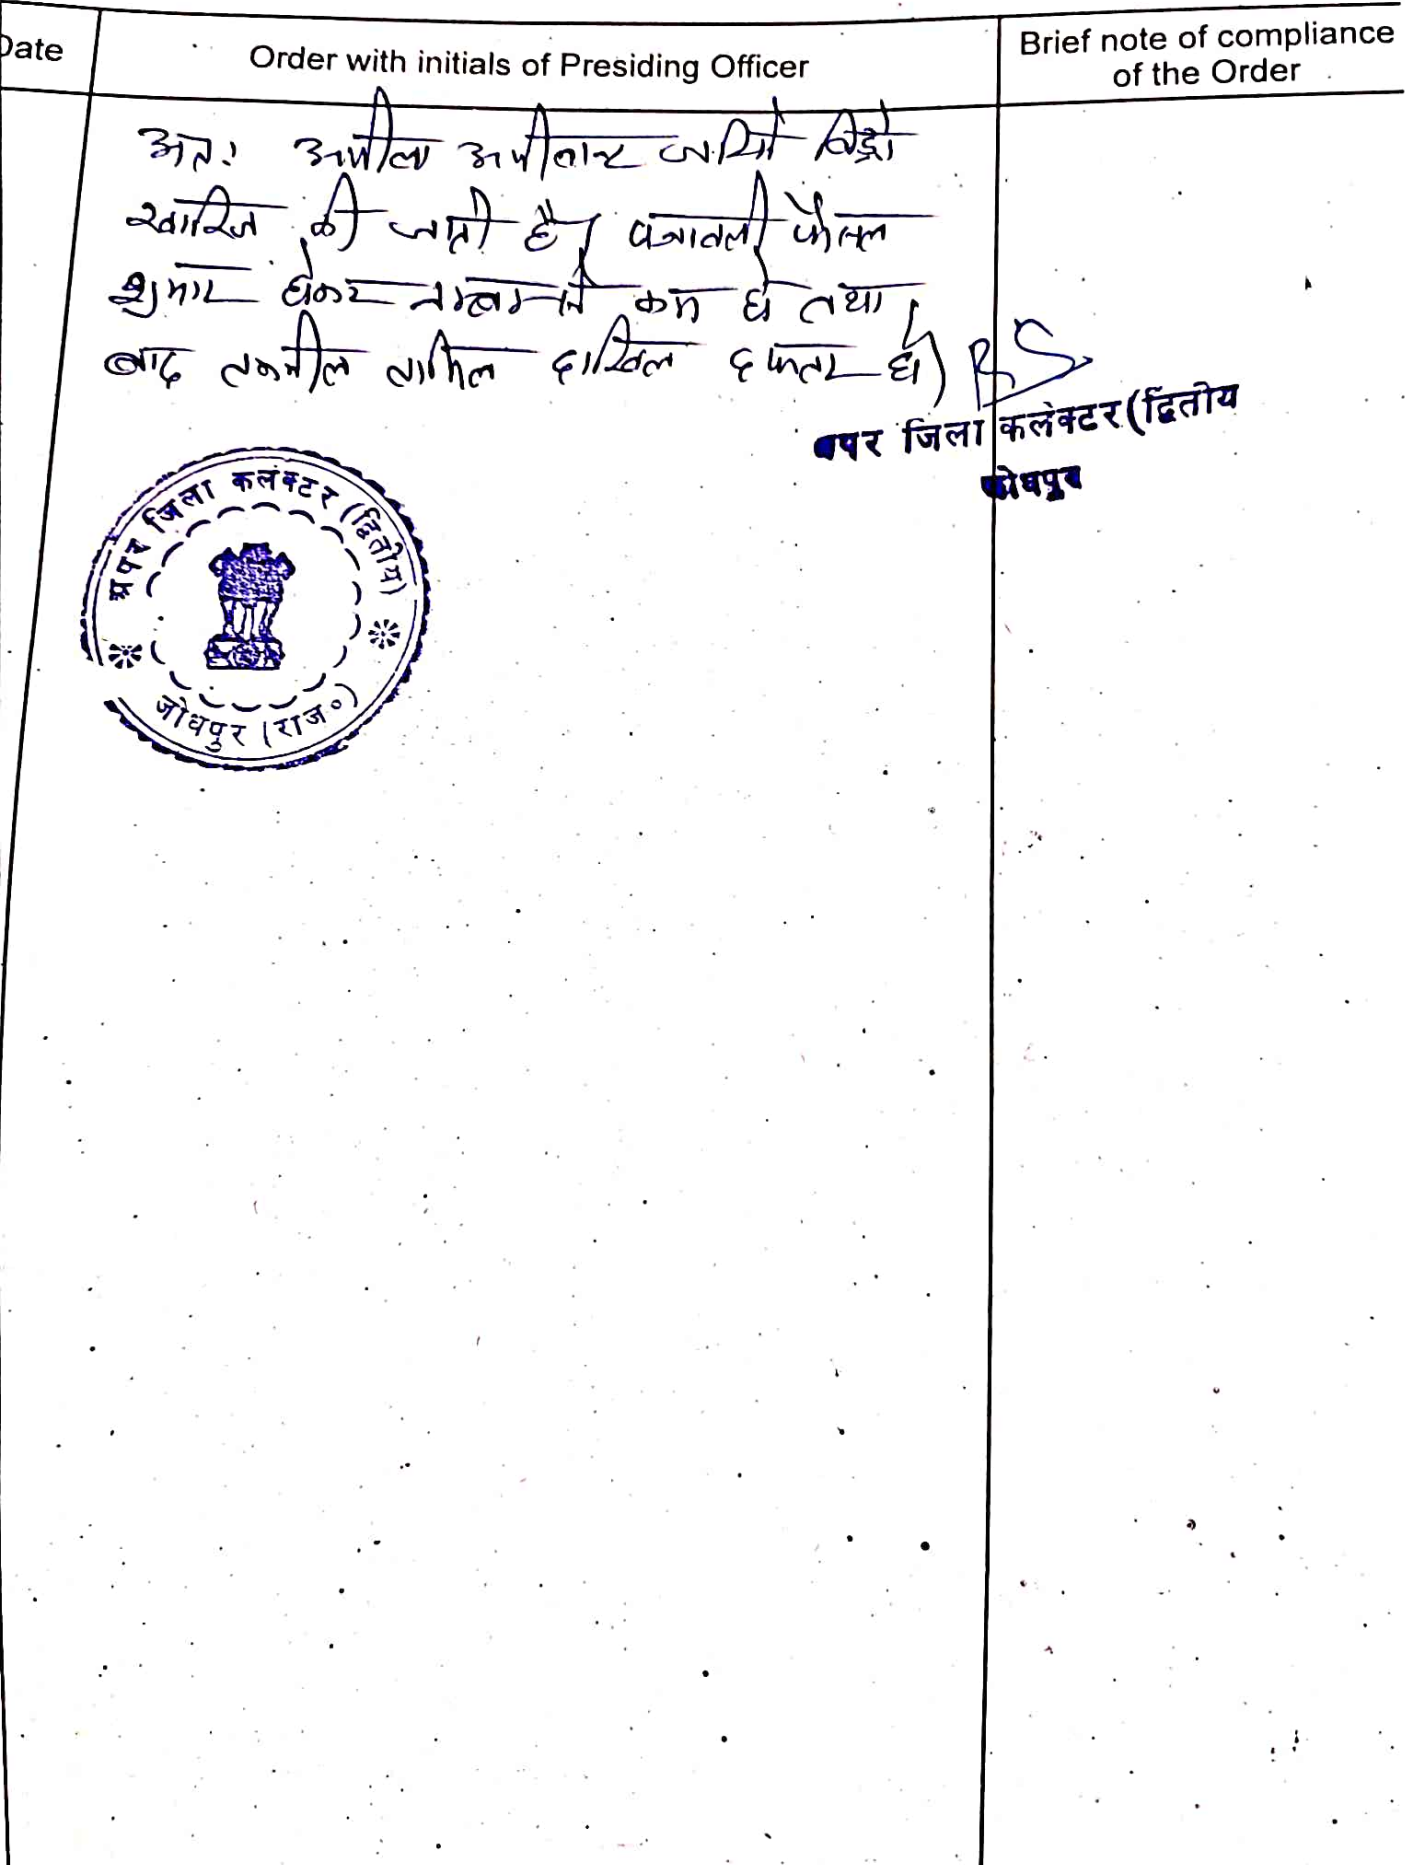 Date
Order with initials of Presiding Officer
Brief note of compliance
of the Order
अतः अपील अपीलान्ट जरिये विड्रो
खारिज की जाती है। पत्रावली फैसल
शुमार होकर नम्बर से कम हो तथा
बाद तकमील तामिल दाखिल दफ्तर हो।
अपर जिला कलेक्टर (द्वितीय
जोधपुर
अपर जिला कलेक्टर (द्वितीय)
जोधपुर (राज०)